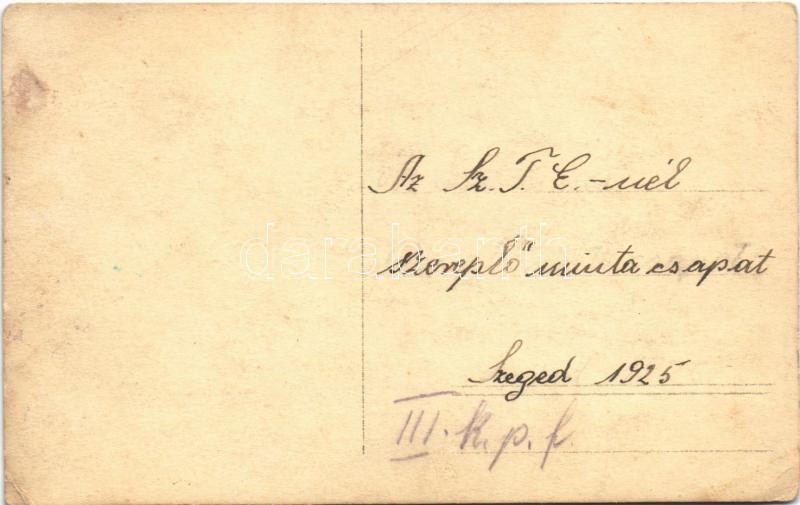 Az Sz. T. E.-nél
szereplő minta csapat
Szeged 1925
III. k. p. f.
darabanth